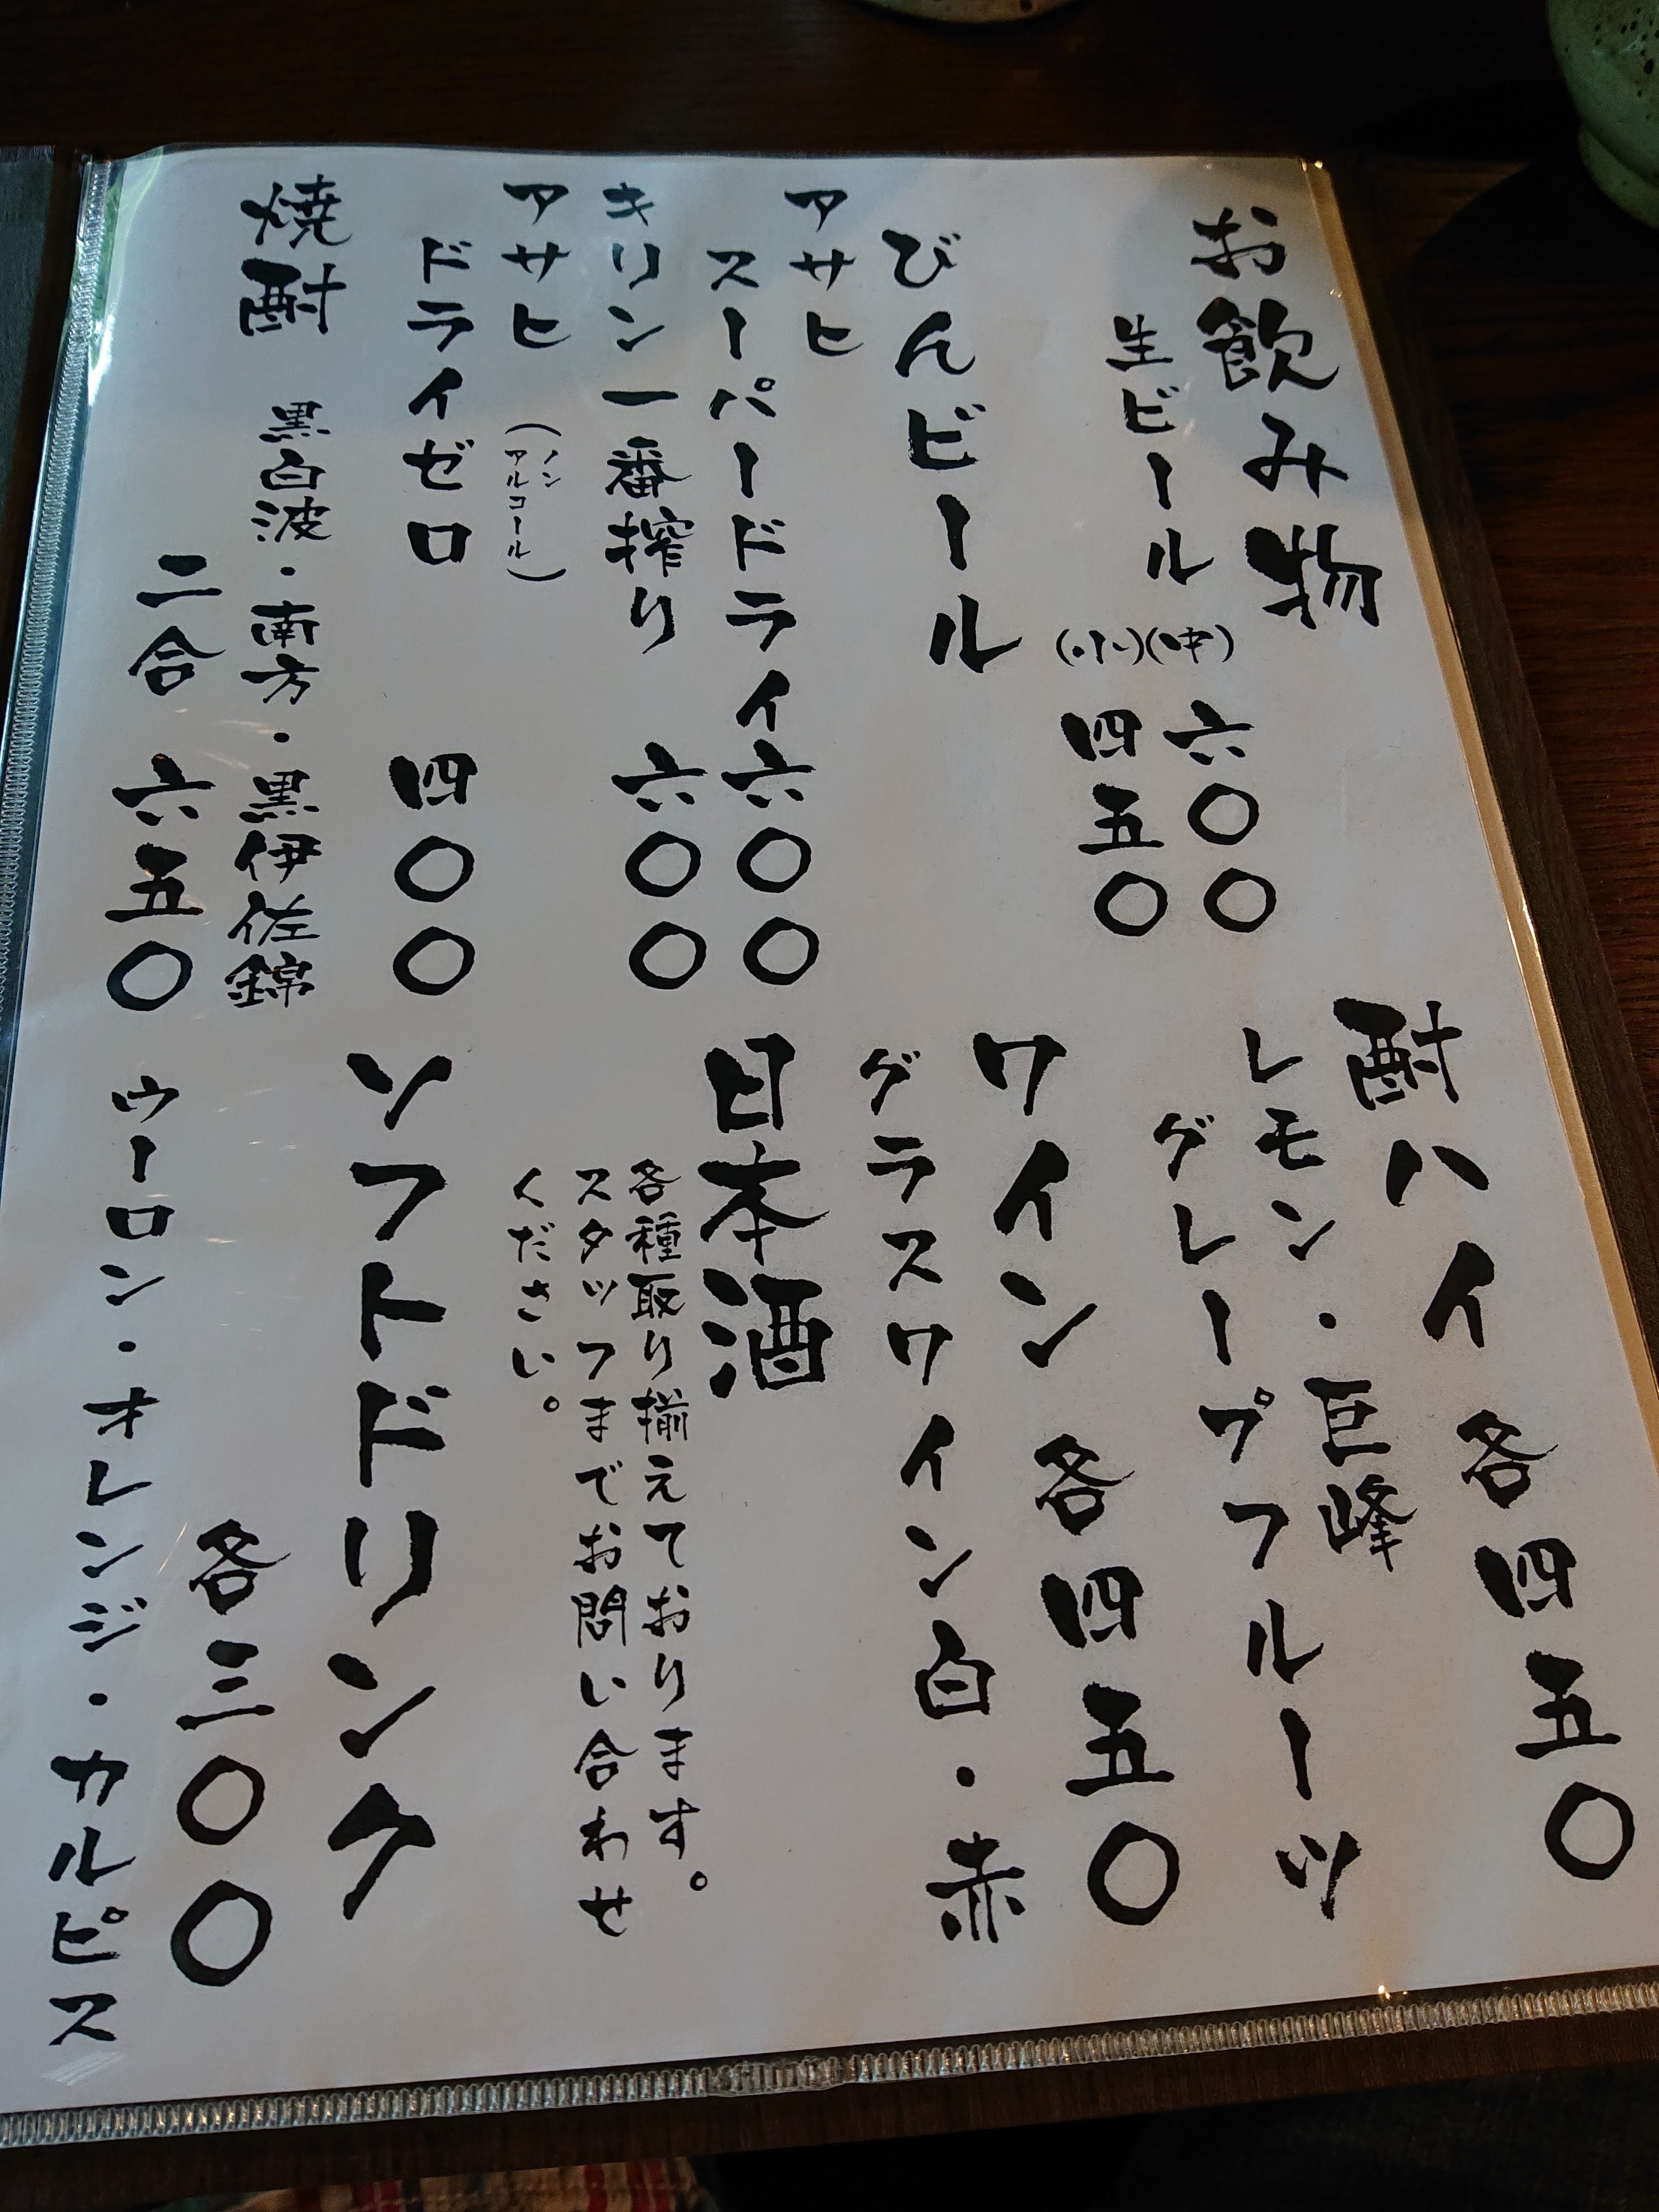 お飲み物
生ビール
(中) 六〇〇
(小) 四五〇
びんビール
アサヒ
スーパードライ 六〇〇
キリン一番搾り 六〇〇
アサヒ
(ノン
アルコール)
ドライゼロ 四〇〇
焼酎
黒白波・南方・黒伊佐錦
二合 六五〇
酎ハイ 各四五〇
レモン・巨峰
グレープフルーツ
ワイン 各四五〇
グラスワイン白・赤
日本酒
各種取り揃えております。
スタッフまでお問い合わせ
ください。
ソフトドリンク
各三〇〇
ウーロン・オレンジ・カルピス